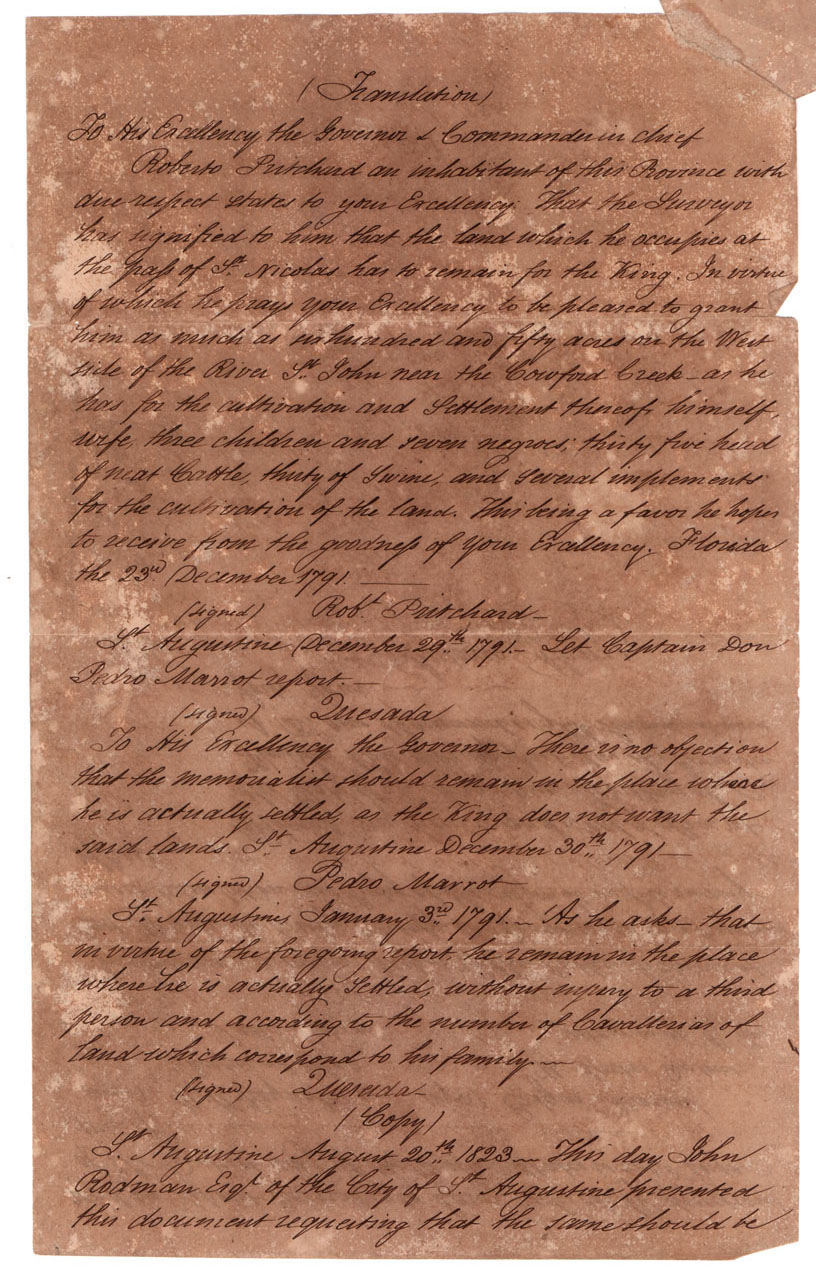 (Translation)
To His Excellency the Governor & Commander in chief
Roberto Pritchard an inhabitant of this Province with
due respect states to your Excellency: That the Surveyor
has signified to him that the land which he occupies at
the pass of St. Nicolas has to remain for the King. In virtue
of which he prays your Excellency to be pleased to grant
him as much as sixhundred and fifty acres on the West
side of the River St. John near the Cowford Creek - as he
has for the cultivation and Settlement thereof, himself,
wife, three children and seven negroes; thirty five head
of neat Cattle, thirty of Swine, and several implements
for the cultivation of the land. This being a favor he hopes
to receive from the goodness of Your Excellency. Florida
the 23rd December 1791. ——
(signed) Robt. Pritchard -
St. Augustine December 29th. 1791 - Let Captain Don
Pedro Marrot report. -
(signed) Quesada
To His Excellency the Governor - There is no objection
that the memorialist should remain in the place where
he is actually settled, as the King does not want the
said lands. St. Augustine December 30th. 1791 -
(signed) Pedro Marrot
St. Augustine, January 3rd. 1791. - As he asks - that
in virtue of the foregoing report he remain in the place
where he is actually settled, without injury to a third
person and according to the number of Cavallerias of
land which correspond to his family. -
(signed) Quesada -
(Copy)
St. Augustine August 20th. 1823 - This day John
Rodman Esqr. of the City of St. Augustine presented
this document requesting that the same should be